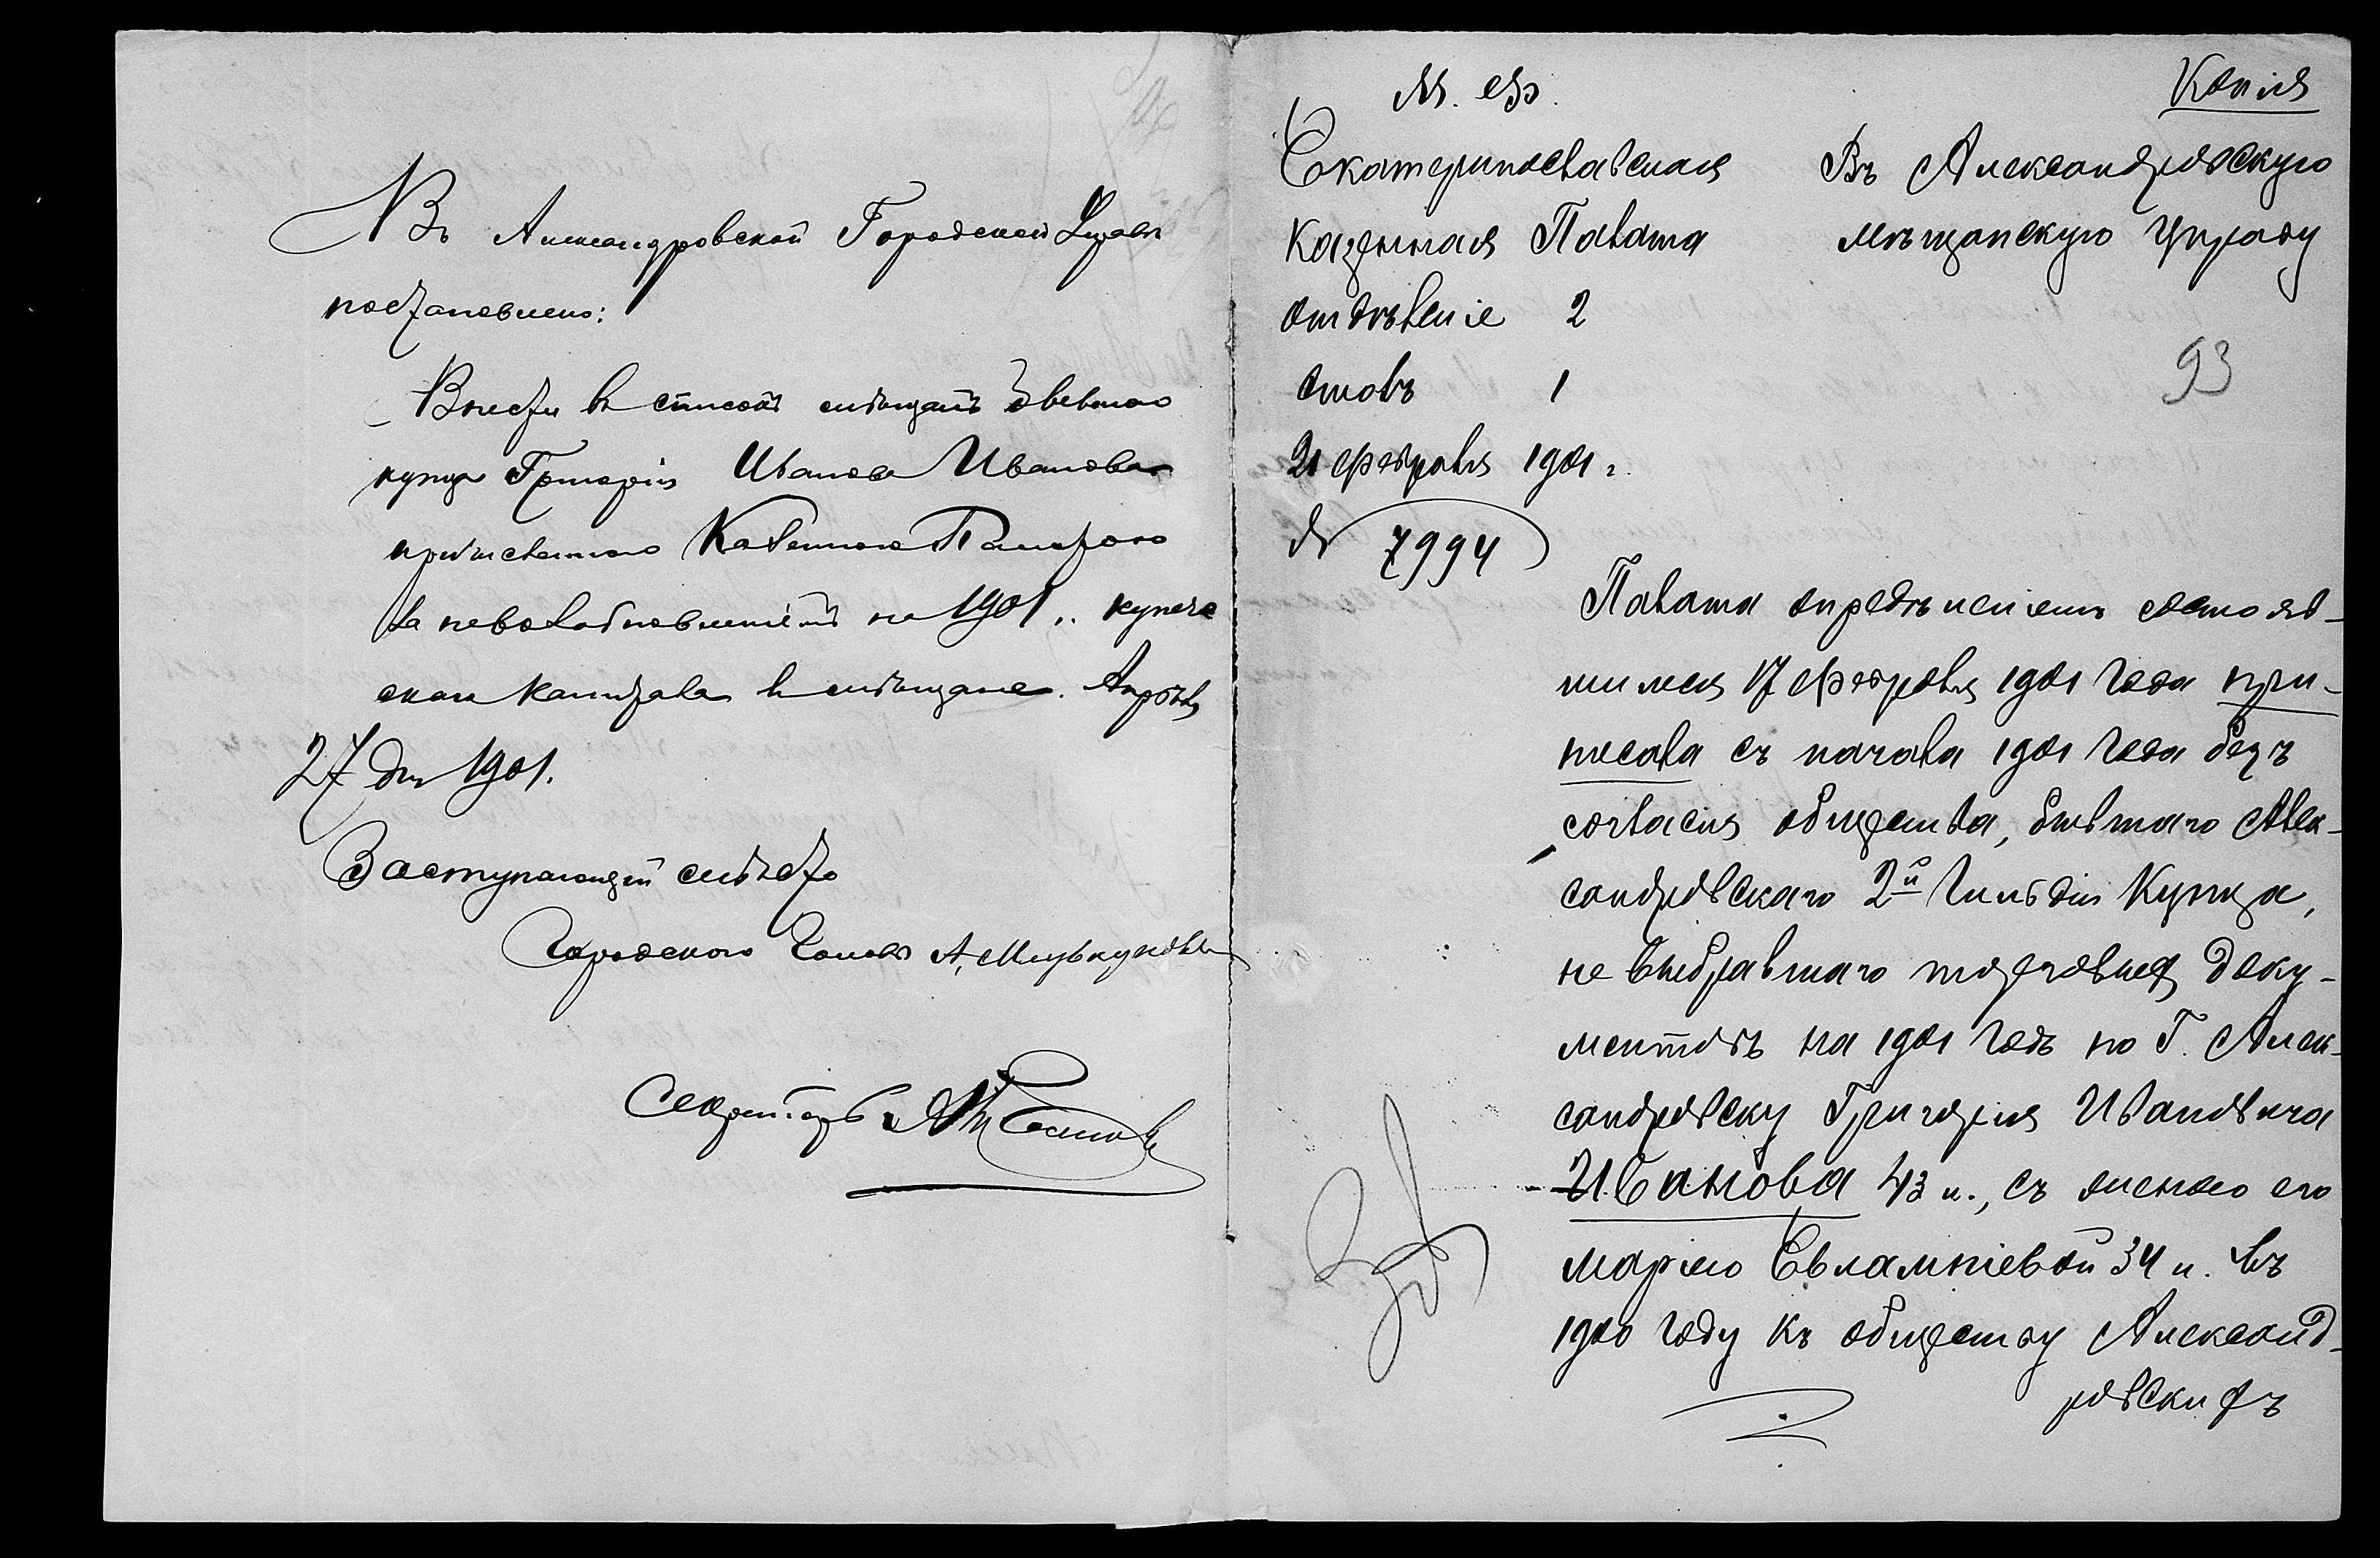 Въ Александровской Городской Управѣ
постановлено:
Внести въ списокъ мѣщанъ бывшаго
купца Григорія Иванова Иванова
причисленнаго Казенною Палатою
за невозобновленіемъ на 1901 г. купече
скаго капитала въ мѣщане. Апрѣля
27 дня 1901.
Заступающій мѣсто
Городского Головы А.
Секретарь
М. Ф.
Копія
Екатеринославская
Казенная Палата
Отдѣленіе 2
Столъ 1
21 февраля 1901 г.
№ 7994
Въ Александровскую
мѣщанскую Управу
93
Палата опредѣленіемъ состояв-
шимся 17 февраля 1901 года при-
писала съ начала 1901 года безъ
согласія общества, бывшаго Алек-
сандровскаго 2й Гильдіи Купца,
не выбравшаго торговыхъ доку-
ментовъ на 1901 годъ по Г. Алек-
сандровску Григорія Ивановича
Иванова 43 л., съ женою его
Маріею Евлампіевой 34 л. въ
1900 году къ обществу Александ-
ровскихъ